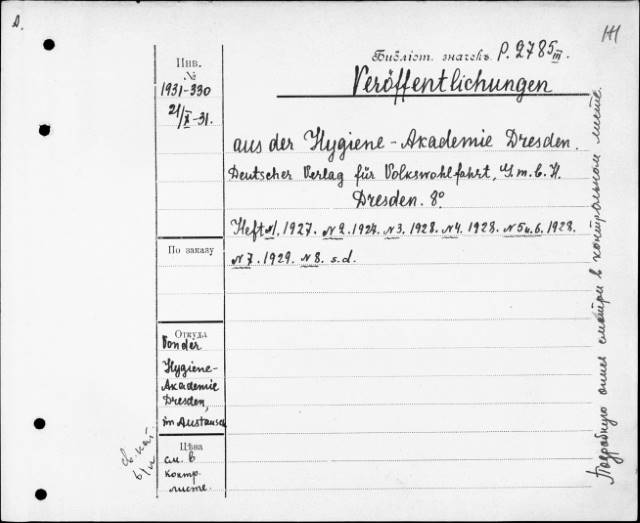 D.
Инв.
№
1931-330
21/X-31.
Библіот. значекъ P. 2785 III.
Veröffentlichungen
aus der Hygiene-Akademie Dresden.
Deutscher Verlag für Volkswohlfahrt, G.m.b.H.
Dresden. 8º
Heft N1. 1927. N2. 1927. N3. 1928. N4. 1928. N5 u. 6. 1928.
N7. 1929. N8. s.d.
По заказу
Откуда
Von der
Hygiene-
Akademie
Dresden,
im Austausch
Цѣна
см. в
контр.
листе.
Подробную опись смотри в контрольном листе.